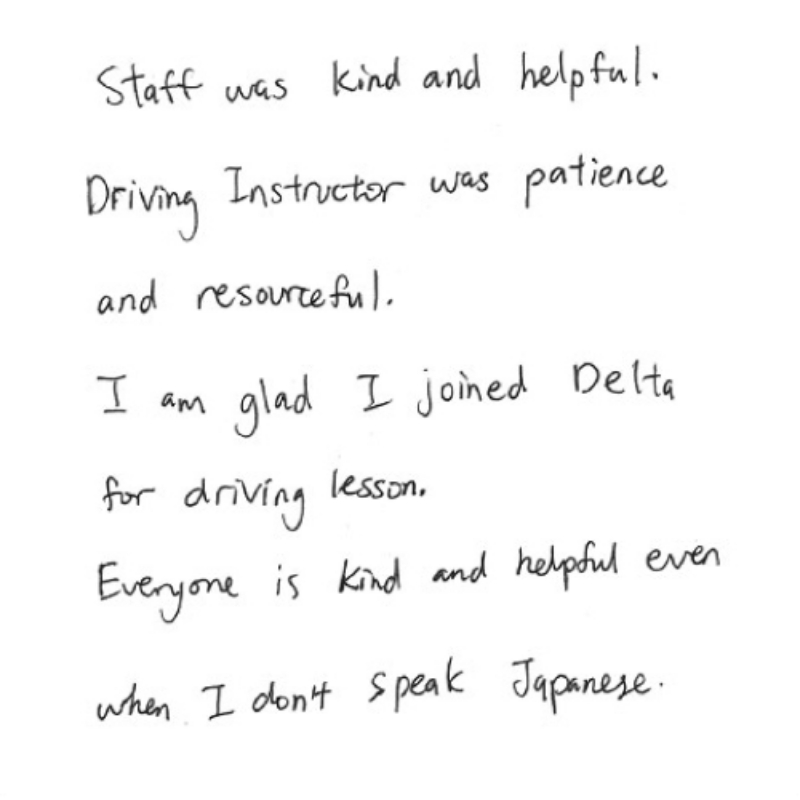 Staff was kind and helpful.
Driving Instructor was patience
and resourceful.
I am glad I joined Delta
for driving lesson.
Everyone is kind and helpful even
when I don't speak Japanese.